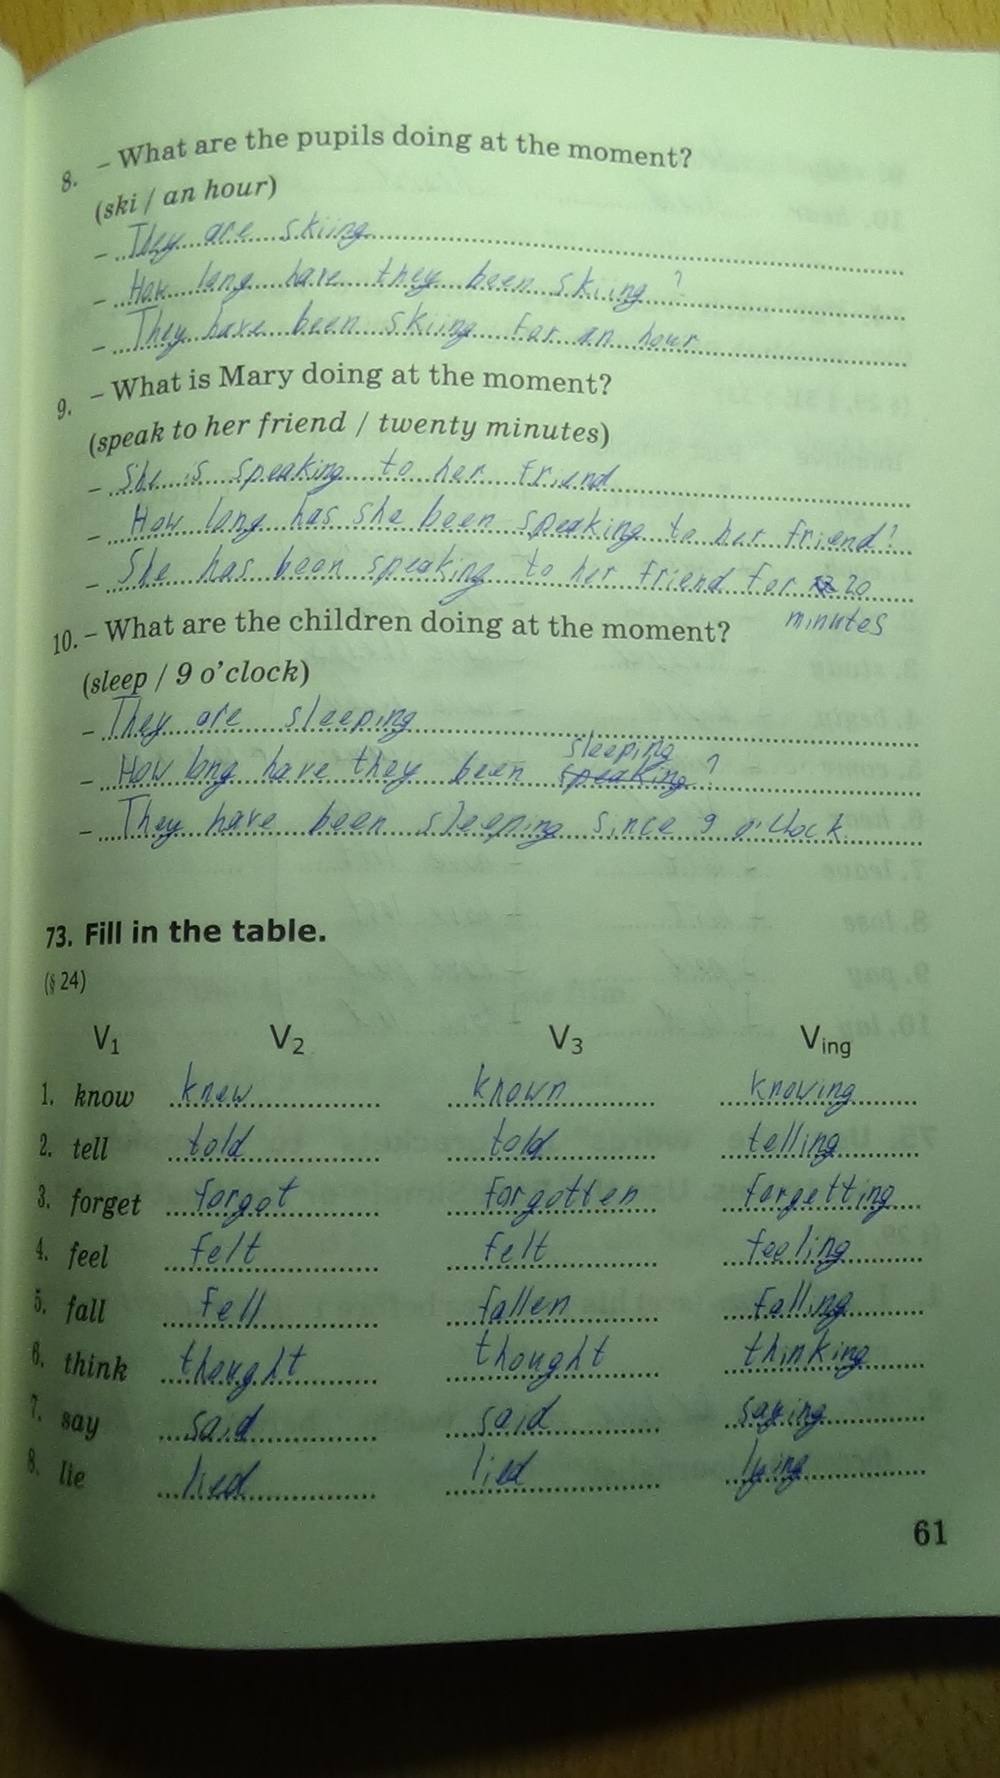 8. – What are the pupils doing at the moment?
(ski / an hour)
– They are skiing
– How long have they been skiing?
– They have been skiing for an hour
9. – What is Mary doing at the moment?
(speak to her friend / twenty minutes)
– She is speaking to her friend
– How long has she been speaking to her friend?
– She has been speaking to her friend for 20
minutes
10. – What are the children doing at the moment?
(sleep / 9 o'clock)
– They are sleeping
sleeping
– How long have they been speaking?
– They have been sleeping since 9 o'clock
73. Fill in the table.
(§ 24)
V1 V2 V3 Ving
1. know knew known knowing
2. tell told told telling
3. forget forgot forgotten forgetting
4. feel felt felt feeling
5. fall fell fallen falling
6. think thought thought thinking
7. say said said saying
8. lie lied lied lying
61